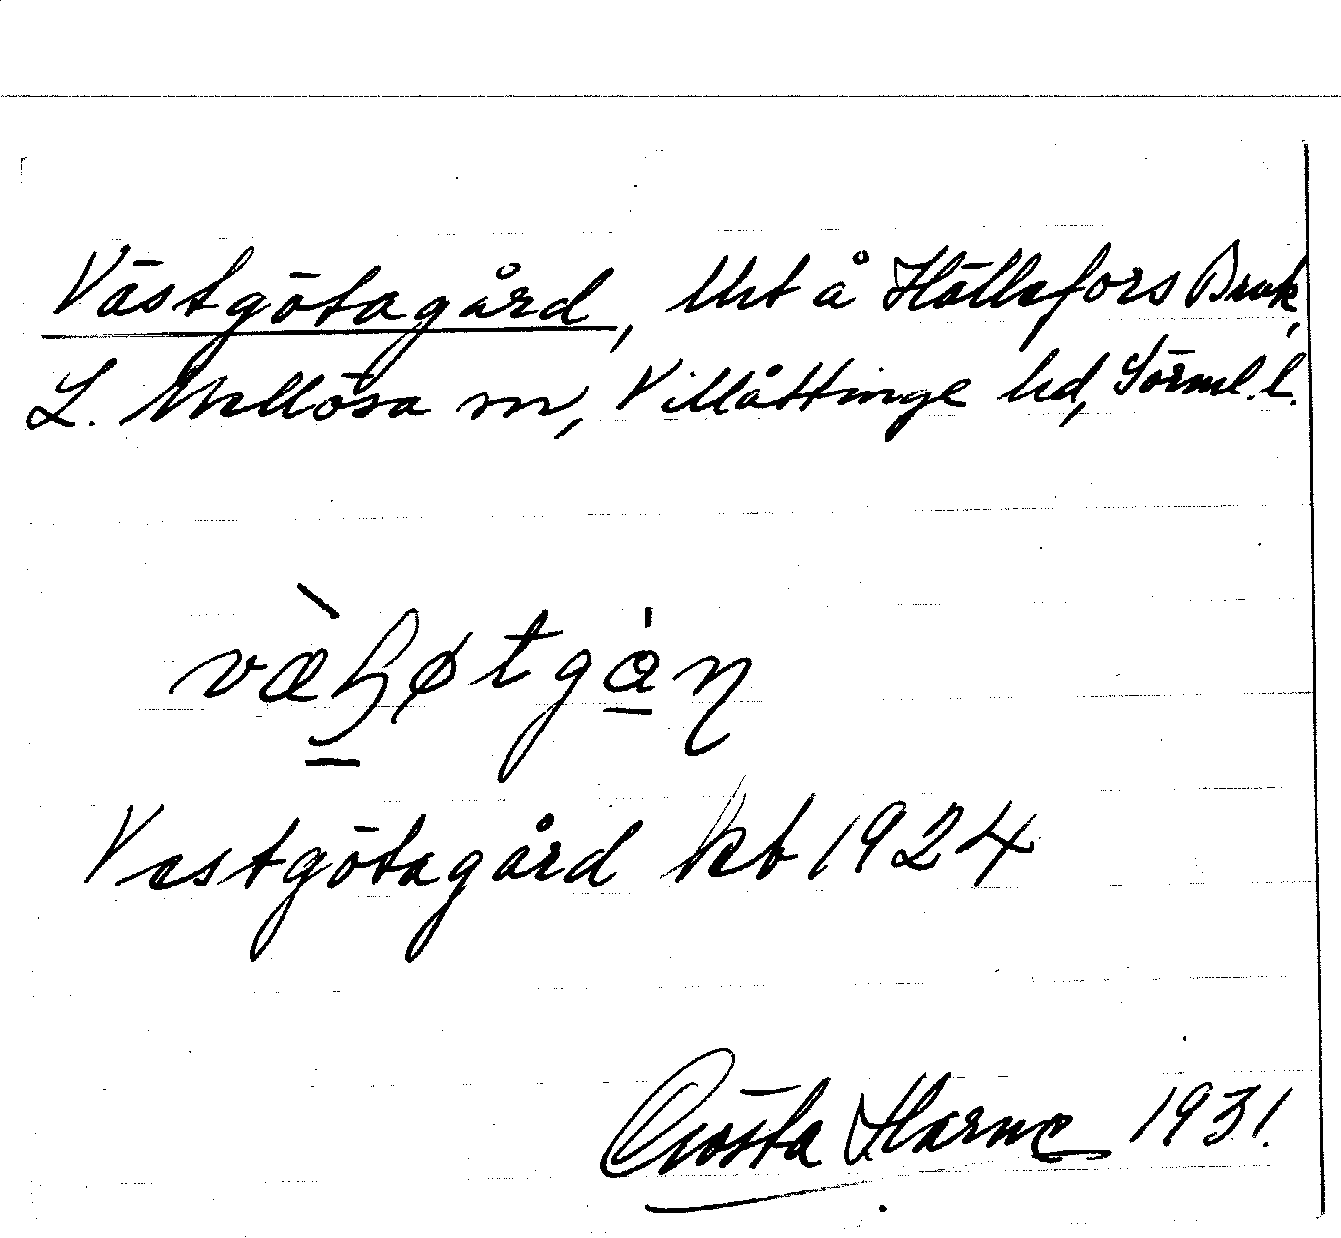 Västgötagård, lht å Hällefors Bruk,
L. Mellösa sn, Villåttinge hd, Sörml. l.
Västgötagård kb 1924
Gösta Harne 1931.